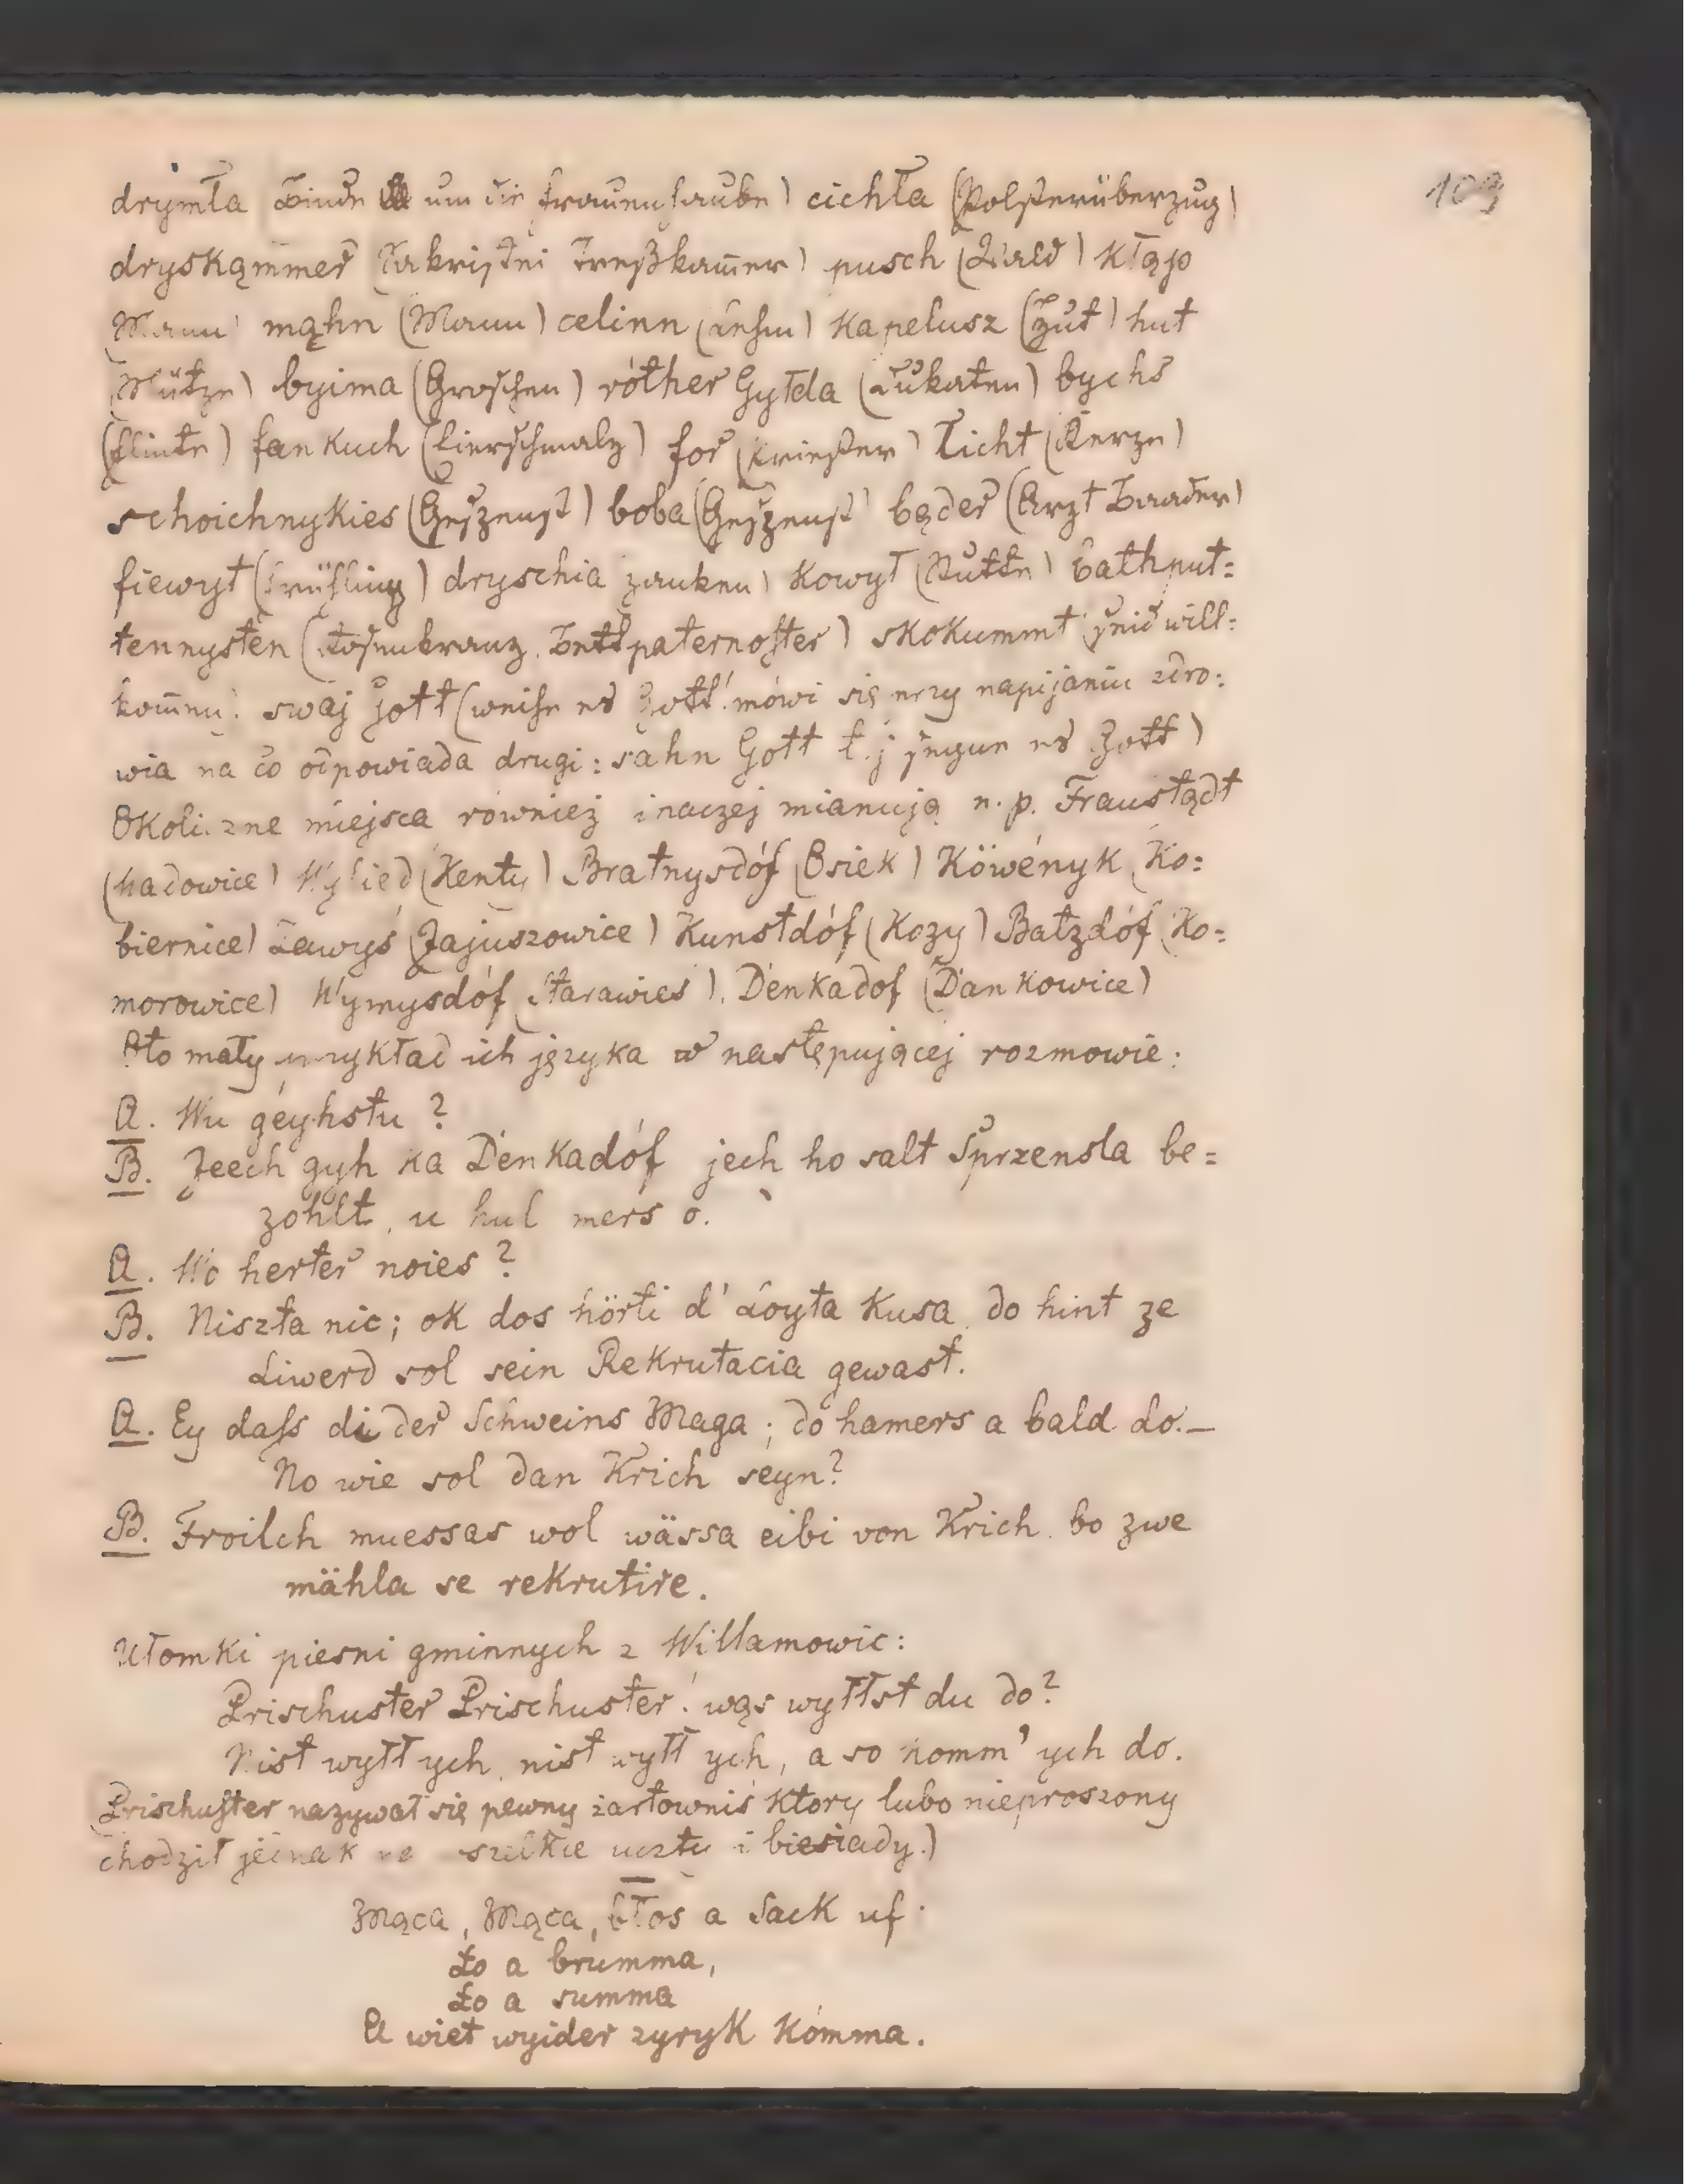 103
drymła Binde um die Frauenhaube) cichła (Polsterüberzug)
dryskąmmer (Sakristei Dreßkam̄er) pusch (Wald) kłąjo
(Mann) mąhn (Mann) celinn (Lehm) Kapelusz (Hut) hut
(Mütze) byima (Groschen) róther Gyłda (Dukaten) bychs
(Flinte) fankuch (Eierschmalz) for (Priester) Licht (Kerze)
schoichnykies (Gespenst) boba (Gespenst) bąder (Arzt Baader)
fiewyt (Frühling) dryschia zanken) Kowył (Stutte) bathput=
tennysten (Rosenkranz. Bettpaternoster) skokummt seid will=
kom̄en. swaj Gott (weihe es Gott! mówi się przy napijaniu zdro=
wia na co odpowiada drugi: sahn Gott t.j segne es Gott)
Okoliczne miejsca również inaczej mianują n.p. Fraustądt
(Wadowice) Wylied (Kenty) Bratnysdóf (Osiek) Köwényk (Ko=
biernice) Lawyś (Jajuszowice) Kunstdóf (Kozy) Batzdóf (Ko=
morowice) Wymysdóf (Starawieś). Denkadof (Dankowice)
Oto mały przykład ich języka w następującej rozmowie:
A. Wu géyhstu?
B. Jeech gyh ka Dénkadóf jech ho salt Sprzensla be=
zohlt, u hul mers o.
A. Wo herter noies?
B. Niszta nic; ok dos hörti d' Łoyta Kusa do hint ze
Liwerd sol sein Rekrutacia gewast.
A. Ey dass di der Schweins Maga; do hamers a bald do.—
No wie sol dan Krich seyn?
B. Froilch muessas wol wässa eibi von Krich. bo zwe
mähla se rekrutire.
Ułomki piesni gminnych z Willamowic:
Prischuster Prischuster! wąs wyłłst du do?
Nist wyłł ych, nist wyłł ych, a so komm' ych do.
(Prischuster nazywał się pewny żartowniś który lubo nieproszony
chodził jednak na szelkie uczty i biesiady.)
Mąca, Mąca, błos a Sack uf.
Ło a brumma,
Ło a summa
A wiet wyider zyryk kómma.